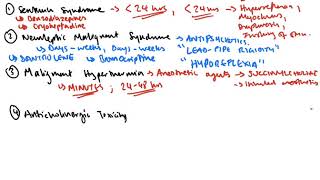 ① Serotonin Syndrome → <24 hrs, <24 hrs → Hyperreflexia,
↳ Benzodiazepines Myoclonus,
↳ Cryoheptadine Diaphoresis,
② Neuroleptic Malignant Syndrome → ANTIPSYCHOTICS.
↳ Days-weeks, Days-weeks "LEAD-PIPE RIGIDITY"
↳ DANTROLENE ↳ Bromocriptine "HYPOREFLEXIA"
③ Malignant Hyperthermia → Anaesthetic agents → SUCCINYLCHOLINE
↳ MINUTES; 24-48 hrs ↳ Inhaled anaesthetics
④ Anticholinergic Toxicity